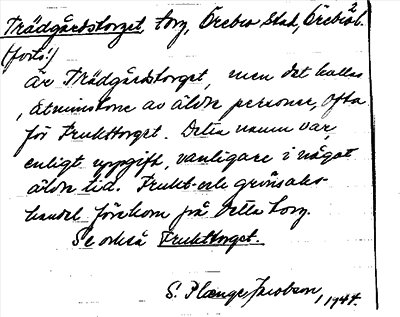 Trädgårdstorget, torg, Örebro stad, Örebro l. 2
(forts.)
är Trädgårdstorget, men det kallas
, åtminstone av äldre personer, ofta
för Frukttorget. Detta namn var,
enligt uppgift, vanligare i något
äldre tid. Frukt- och grönsaks-
handel förekom på detta torg.
Se också Frukttorget.
S. Plænge Jacobson, 1944.